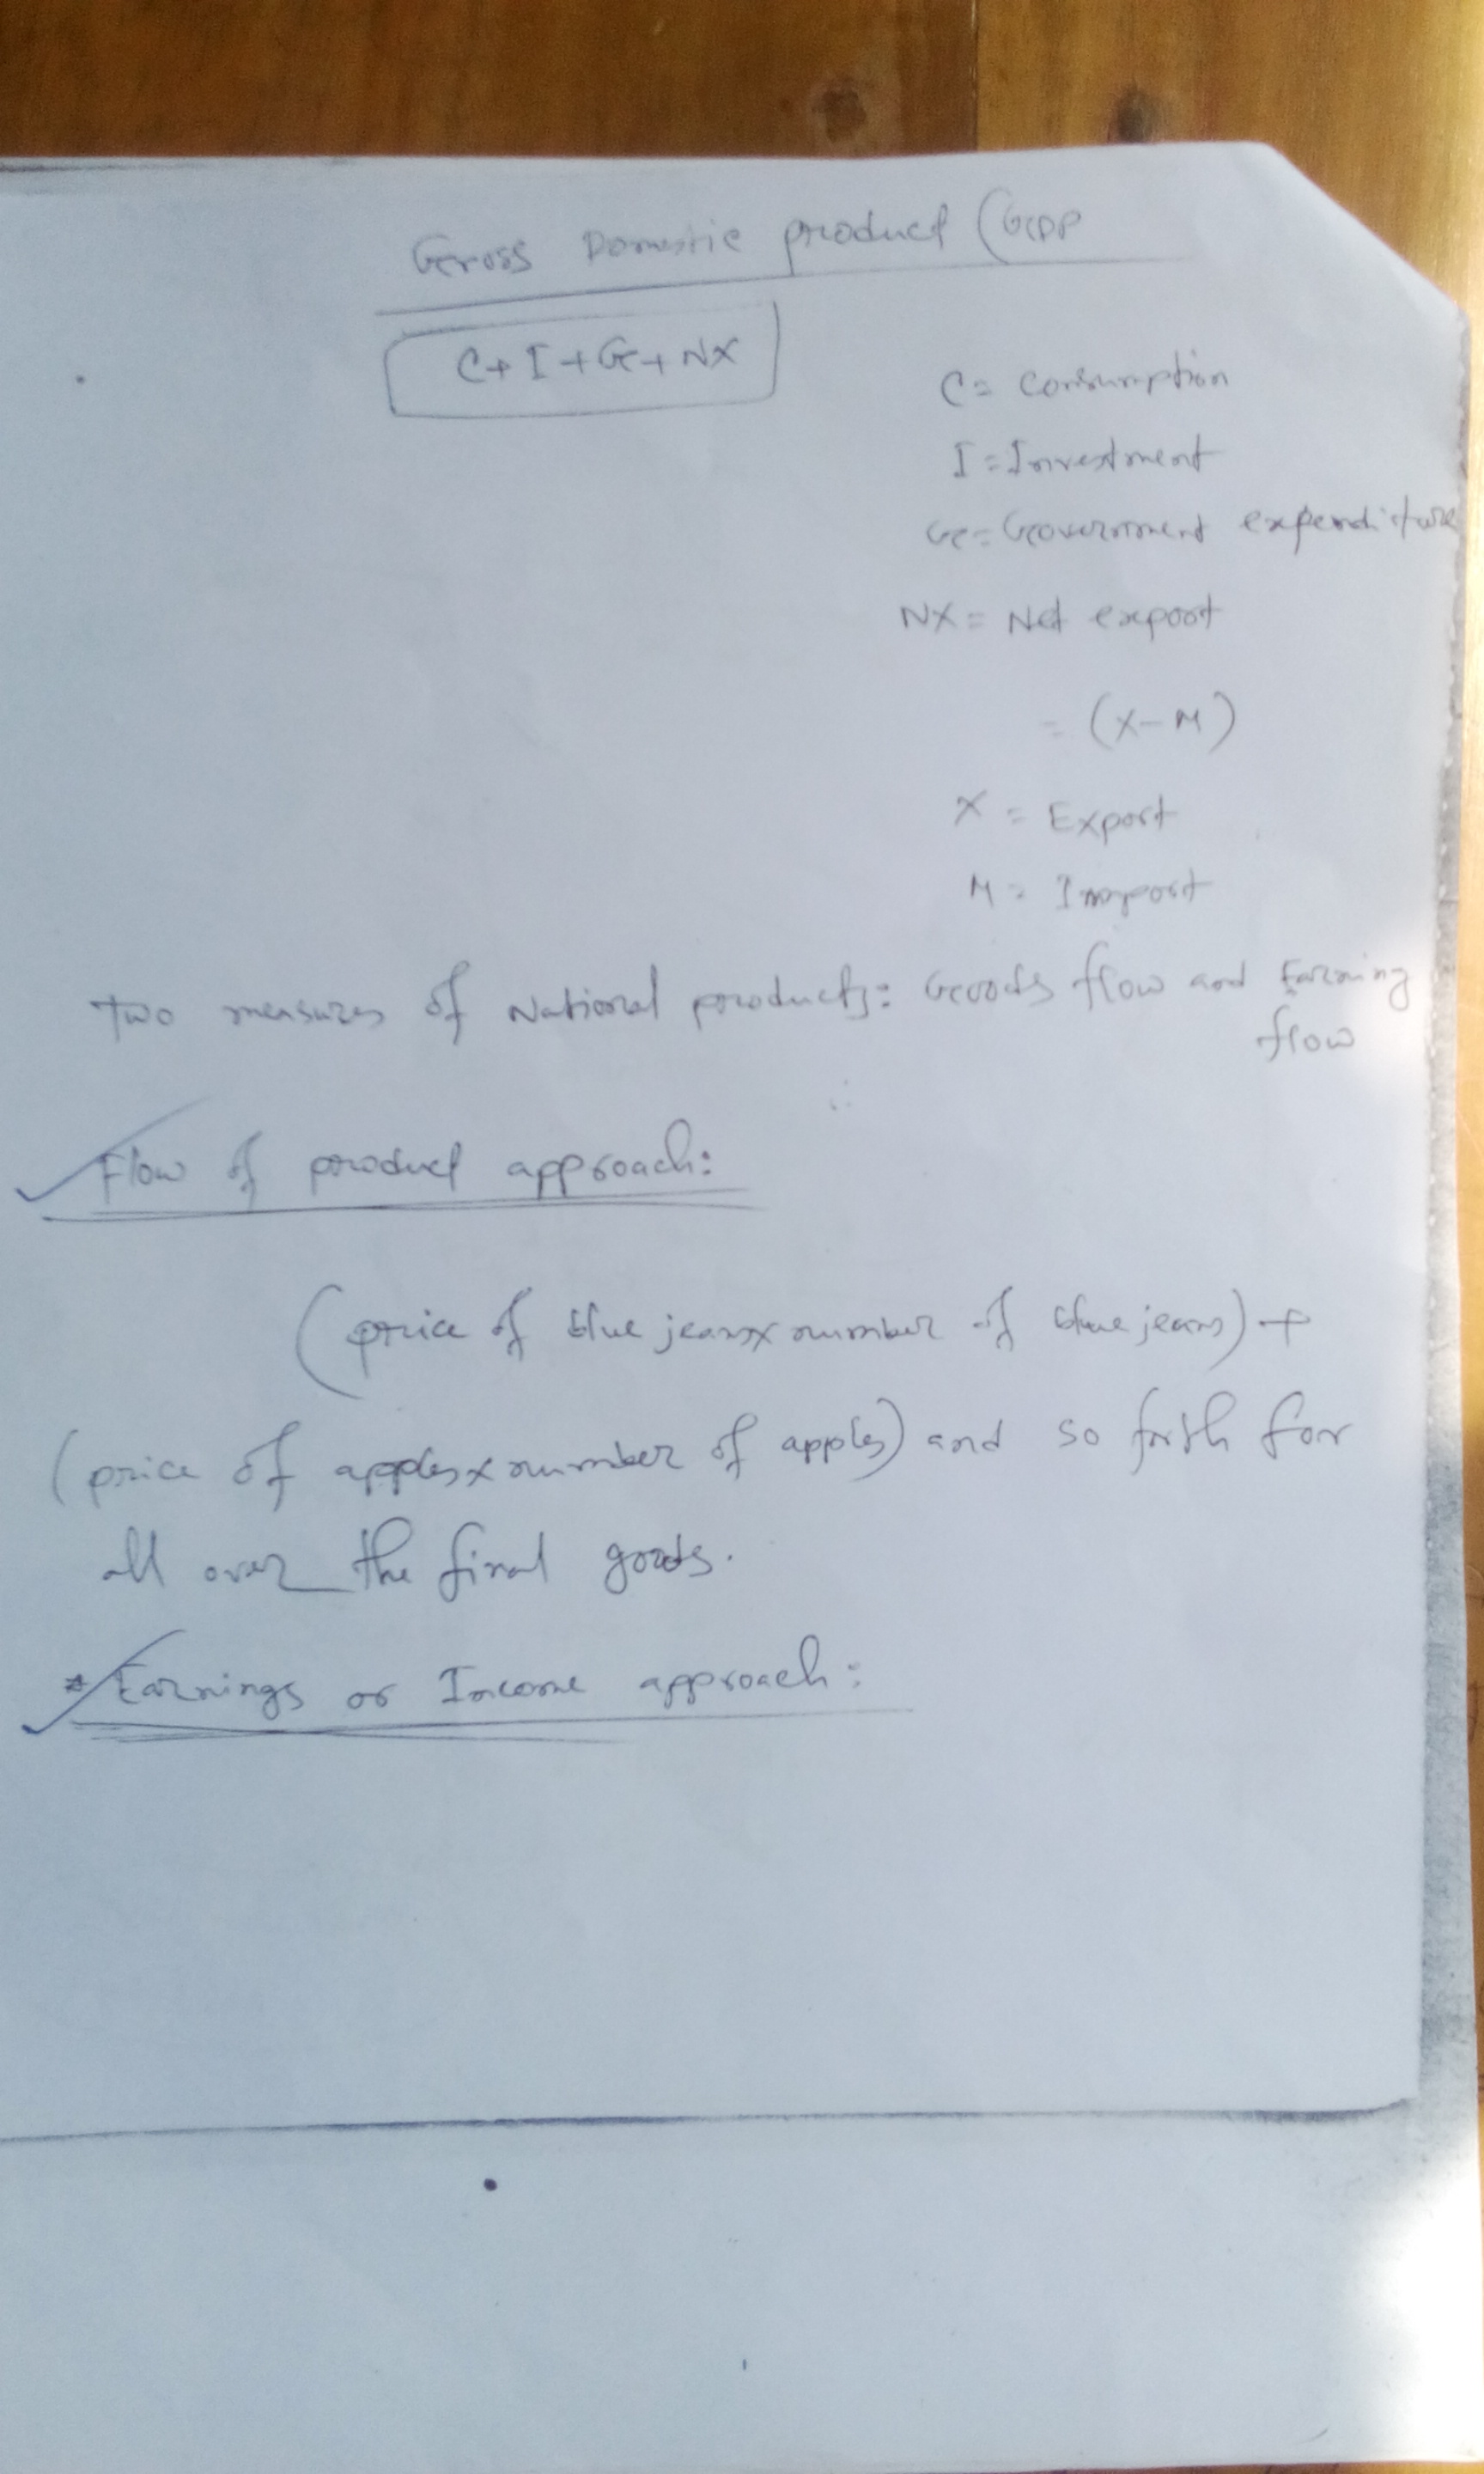 Gross Domestic product (GDP
C+I+G+NX
C = Consumption
I = Investment
G = Government expenditure
NX = Net export
= (X-M)
X = Export
M = Import
Two measures of National products: Goods flow and Earning
flow
Flow of product approach:
(price of blue jeans x number of blue jeans) +
(price of apples x number of apples) and so forth for
all over the final goods.
* Earnings or Income approach: